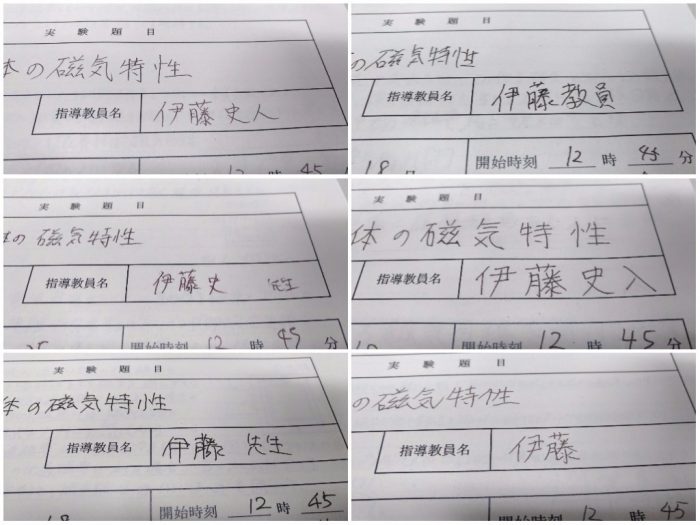 実験題目
体の磁気特性
指導教員名 伊藤史人
12 45
の磁気特性
指導教員名 伊藤教員
18 開始時刻 12 時 45 分
実験題目
体の磁気特性
指導教員名 伊藤史 先生
開始時刻 12 時 45 分
体の磁気特性
指導教員名 伊藤史入
開始時刻 12 時 45 分
実験題目
体の磁気特性
指導教員名 伊藤 先生
18 開始時刻 12 時 45
実験題目
の磁気特性
指導教員名 伊藤
開始時刻 12 時 45